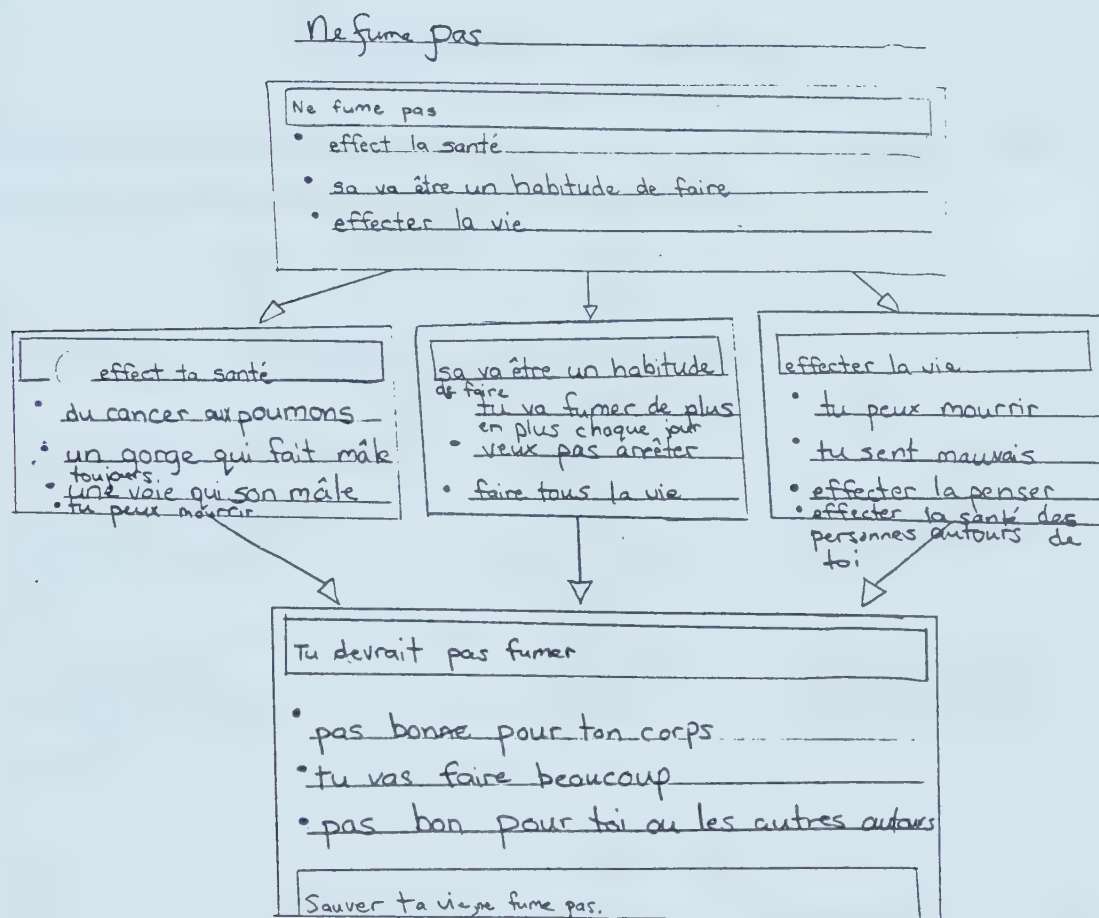 Ne fume pas
Ne fume pas
• effect la santé
• sa va être un habitude de faire
• effecter la vie
effect ta santé
• du cancer aux poumons
• un gorge qui fait mâle
toujours
• une voie qui son mâle
• tu peux mourrir
sa va être un habitude
de faire
tu va fumer de plus
en plus chaque jour
• veux pas arrêter
• faire tous la vie
effecter la vie
• tu peux mourrir
• tu sent mauvais
• effecter la penser
• effecter la santé des
personnes autours de
toi
Tu devrait pas fumer
• pas bonne pour ton corps
• tu vas faire beaucoup
• pas bon pour toi ou les autres autours
Sauver ta vie, ne fume pas.